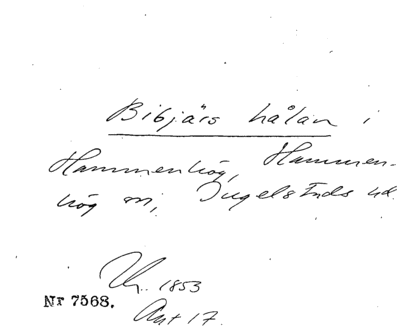 Bibjärs hålan i
Hammenhög, Hammen-
hög sn, Ingelstads hd.
1853
Nr 7568.
Ant 17.